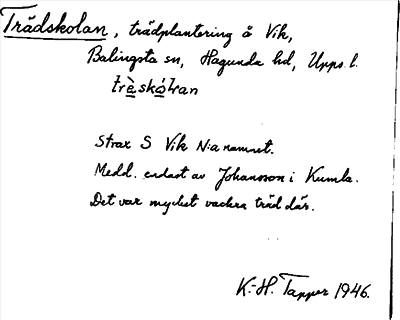 Trädskolan, trädplantering å Vik,
Balingsta sn, Hagunda hd, Upps. l.
trè̱skó̱ɫan
Strax S Vik
Medd. endast av Johansson i Kumla.
Det var mycket vackra träd där.
K.-H. Tapper 1946.